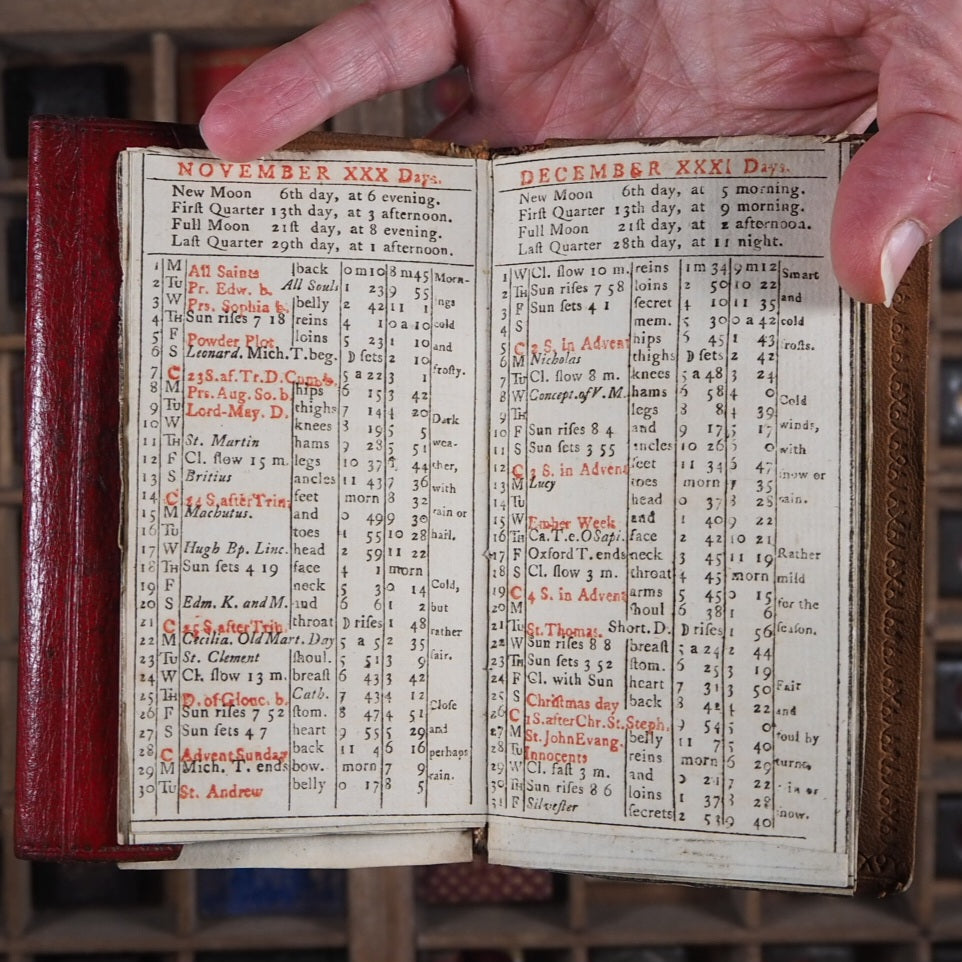 NOVEMBER XXX Days.
New Moon 6th day, at 6 evening.
Firſt Quarter 13th day, at 3 afternoon.
Full Moon 21ſt day, at 8 evening.
Laſt Quarter 29th day, at 1 afternoon.
1 M All Saints back 0m10 8m45 Morn-
2 Tu Pr. Edw. b. All Souls 1 23 9 55
3 W Prs. Sophia b. belly 2 42 11 1 ings
4 TH Sun riſes 7 18 reins 4 1 0a10 cold
5 F Powder Plot loins 5 23 1 10 and
6 S Leonard. Mich.T.beg. D ſets 2 10
7 C 23S.af.Tr.D.Cumb.b. 5a22 3 1 froſty.
8 M Prs.Aug.So.b. hips 6 15 3 42
9 Tu Lord-May. D. thighs 7 14 4 20
10 W knees 8 19 5 5 Dark
11 TH St. Martin hams 9 28 5 51 wea-
12 F Cl. ſlow 15 m. legs 10 37 44 ther,
13 S Britius ancles 11 43 7 36 with
14 C 24 S,afterTrin. feet morn 8 32
15 M Machutus. and 0 49 9 30 rain or
16 Tu toes 1 55 10 28 hail.
17 W Hugh Bp. Linc. head 2 59 11 22
18 TH Sun ſets 4 19 face 4 1 morn
19 F neck 5 3 0 14 Cold,
20 S Edm. K. and M. and 6 6 1 2 but
21 C 25 S,afterTrin. throat D riſes 1 48
22 M Cecilia. Old Mart. Day 5a 5 2 35 rather
23 Tu St. Clement ſhoul. 5 51 3 9 fair.
24 W Cl. ſlow 13 m. breaſt 6 43 3 42
25 TH D. of Glouc. b. Cath. 7 43 4 12
26 F Sun riſes 7 52 ſtom. 8 47 4 51 Cloſe
27 S Sun ſets 4 7 heart 9 55 5 29 and
28 C AdventSunday back 11 4 6 16 perhaps
29 M Mich. T. ends bow. morn 7 9
30 Tu St. Andrew belly 0 17 8 5 rain.
DECEMBER XXXI Days.
New Moon 6th day, at 5 morning.
Firſt Quarter 13th day, at 9 morning.
Full Moon 21ſt day, at 2 afternoon.
Laſt Quarter 28th day, at 11 night.
1 W Cl. ſlow 10 m. reins 1m34 9m12 Smart
2 TH Sun riſes 7 58 loins 2 50 10 22
3 F Sun ſets 4 1 ſecret 4 10 11 35 and
4 S mem. 5 30 0a42 cold
5 C 2 S, in Advent hips 5 45 1 43
6 M Nicholas thighs D ſets 2 42 froſts.
7 Tu Cl. ſlow 8 m. knees 5a48 3 24
8 W Concept.of V. M. hams 6 58 4 0
9 TH legs 8 8 4 39 Cold
10 F Sun riſes 8 4 and 9 17 5 17 winds,
11 S Sun ſets 3 55 ancles 10 26 0 with
12 C 3 S. in Advent feet 11 34 47
13 M Lucy toes morn 7 35 ſnow or
14 Tu head 0 37 8 28 rain.
15 W Ember Week and 1 40 9 22
16 TH Ca.T.e.OSapi. face 2 42 10 21
17 F Oxford T. ends neck 3 45 11 19 Rather
18 S Cl. ſlow 3 m. throat 4 45 morn mild
19 C 4 S. in Advent arms 5 45 0 15
20 M ſhoul 6 38 1 6 for the
21 Tu St. Thomas. Short. D. D riſes 1 56 ſeaſon.
22 W Sun riſes 8 8 breaſt 5a24 2 44
23 TH Sun ſets 3 52 ſtom. 6 25 3 19
24 F Cl. with Sun heart 7 31 3 50 Fair
25 S Chriſtmas day back 8 42 4 22 and
26 C 1S.afterChr.St.Steph. 9 54 5 0
27 M St. John Evang. belly 11 7 5 40 foul by
28 Tu Innocents reins morn 6 29 turns,
29 W Cl. faſt 3 m. and 0 21 7 22
30 TH Sun riſes 8 6 loins 1 37 8 28 in or
31 F Silveſter ſecrets 2 53 9 40 ſnow.